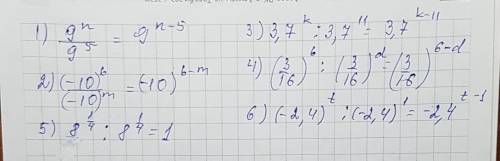 1) 9^n / 9^5 = 9^(n-5)
2) (-10)^6 / (-10)^m = (-10)^(6-m)
5) 8^(1/4) : 8^(1/4) = 1
3) 3,7^k : 3,7^11 = 3,7^(k-11)
4) (3/16)^6 : (3/16)^d = (3/16)^(6-d)
6) (-2,4)^t : (-2,4)^1 = -2,4^(t-1)